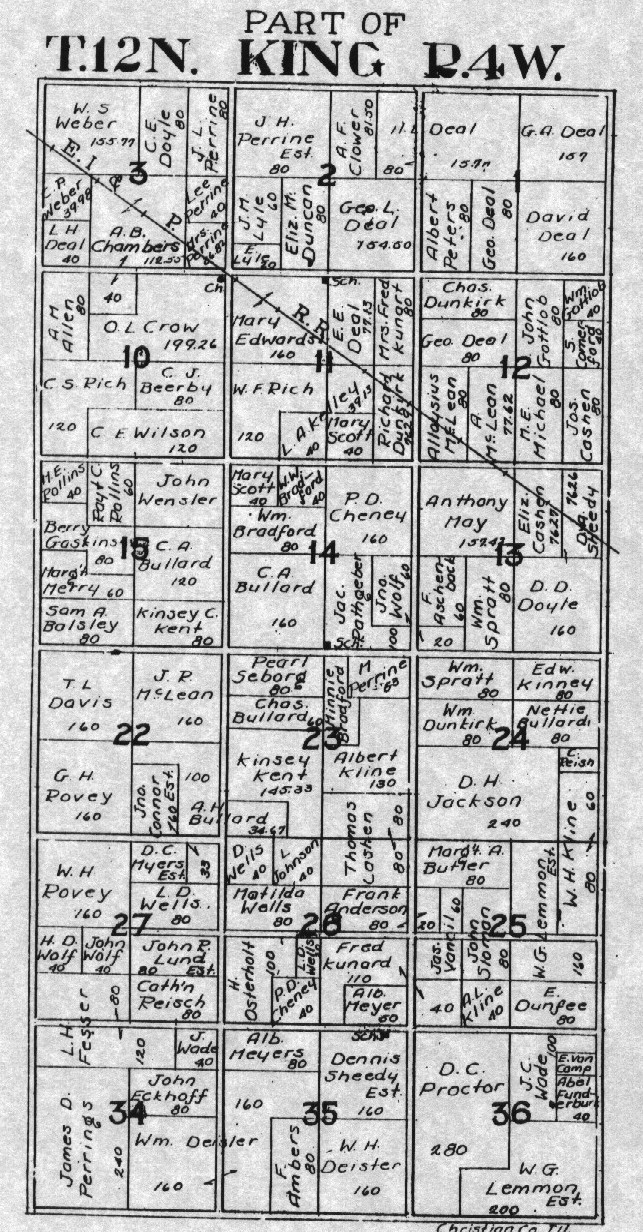 PART OF
T.12N. KING R.4W.
W. S
Weber
155.77
C. E.
Doyle
80
J. L.
Perrine
80
3
E. I. & P.
L.P.
Weber
39.98
L H
Deal
40
A.B.
Chambers
112.50
Lee
Perrine
40
Mrs.
Perrine
J. H.
Perrine
Est.
80
A. F.
Clower
81.50
80
2
J. M.
Lyle
60
E.
Lyle
20
Eliz. M.
Duncan
80
Geo. L.
Deal
154.60
Deal
G. A. Deal
157
1
Albert
Peters
80
Geo. Deal
80
David
Deal
160
A M
Allen
80
40
O. L Crow
199.26
Ch.
10
C. S. Rich
120
C. J.
Beerby
80
C E Wilson
120
R.R.
Mary
Edwards
160
Sch.
E. E.
Deal
77.13
Mrs. Fred
Kunart
80
11
W. F. Rich
120
L A Kelley
39.13
40
Mary
Scott
40
Richard
Dunkirk
Chas.
Dunkirk
80
Geo. Deal
80
John
Gottlob
80
Wm.
Gottlob
40
S.
Comer
ford
40
12
Aloysius
McLean
80
A.
McLean
77.62
M. E.
Michael
80
Jos.
Cashen
80
H.E.
Rollins
40
Rayt C.
Rollins
60
John
Wensler
Berry
Gaskins
80
15
C. A.
Bullard
120
Marg't
Merry 60
Sam A.
Balsley
80
Kinsey C.
Kent
80
Mary
Scott
40
W.W.
Brad-
ford
40
Wm.
Bradford
80
P. D.
Cheney
160
14
C. A.
Bullard
160
Jac.
Rathgeber
Jno.
Wolf
60
100
Sch.
Anthony
May
157.42
Eliz.
Cashen
76.27
D.A.
Sheedy
76.26
13
F.
Aschen
back
60
20
Wm.
Spratt
80
D. D.
Doyle
160
T. L
Davis
160
J. R.
McLean
160
22
G. H.
Rovey
160
Jno.
Connor
Est.
160
100
A. H.
Bullard
34.67
Pearl
Sebord
80
Minnie
Bradford
M
Perrine
Chas.
Bullard 60
23
Kinsey
Kent
145.33
Albert
Kline
130
Thomas
Cashen
80
80
Wm.
Spratt
80
Edw.
Kinney
80
Wm
Dunkirk
80
Nettie
Bullard
80
24
C.
Reish
D. H.
Jackson
240
60
W. H. Kline
80
W. H
Rovey
160
D. C.
Myers
Est.
33
L. D.
Wells
80
27
H. D.
Wolf
40
John
Wolf
40
John R.
Lund
80 Est.
80
Cath'n
Reisch
80
D.
Wells
40
L
Johnson
40
Matilda
Wells
80
Frank
Anderson
80
26
H.
Osterholt
100
L.D.
Wells
P.D.
Cheney
40
Fred
Kunard
110
Alb.
Meyer
50
Marg't. A.
Butler
80
40
60
Jas.
Vancil
John
Sloman
80
25
W. G. Lemmon
Est.
160
40
A.L.
Kline
40
E.
Dunfee
80
L. H.
Fesser
120
J.
Wade
40
John
Eckhoff
80
34
James D.
Perrings
240
Wm. Deisler
160
Alb.
Meyers
80
160
Sch.
Dennis
Sheedy
Est.
160
35
F.
Ambers
80
W. H.
Deister
160
D. C.
Proctor
280
J.C.
Wade
100
E. Van
Camp
Abel
Fund-
erburk
40
36
W. G.
Lemmon
Est.
200
Christian Co. Ill.